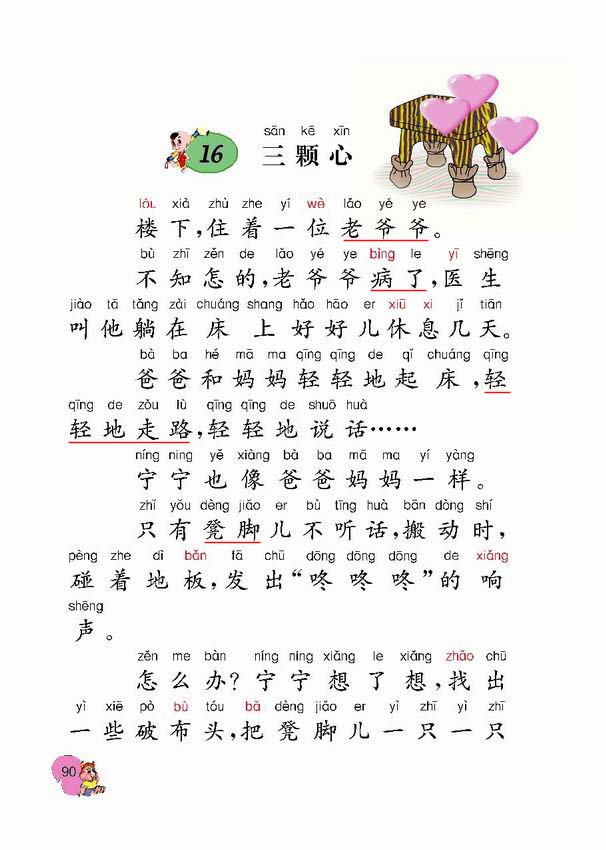 sān kē xīn
16 三颗心
lóu xià zhù zhe yí wèi lǎo yé ye
楼下,住着一位老爷爷。
bù zhī zěn de lǎo yé ye bìng le yī shēng
不知怎的,老爷爷病了,医生
jiào tā tǎng zài chuáng shang hǎo hāo er xiū xi jǐ tiān
叫他躺在床上好好儿休息几天。
bà ba hé mā ma qīng qīng de qǐ chuáng qīng
爸爸和妈妈轻轻地起床,轻
qīng de zǒu lù qīng qīng de shuō huà
轻地走路,轻轻地说话……
níng ning yě xiàng bà ba mā ma yí yàng
宁宁也像爸爸妈妈一样。
zhǐ yǒu dèng jiǎo er bù tīng huà bān dòng shí
只有凳脚儿不听话,搬动时,
pèng zhe dì bǎn fā chū dōng dōng dōng de xiǎng
碰着地板,发出“咚咚咚”的响
shēng
声。
zěn me bàn níng ning xiǎng le xiǎng zhǎo chū
怎么办?宁宁想了想,找出
yì xiē pò bù tóu bǎ dèng jiǎo er yì zhī yì zhī
一些破布头,把凳脚儿一只一只
90